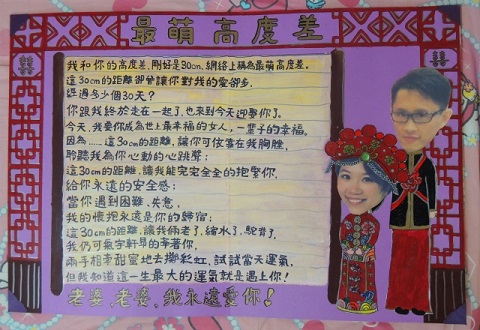 最萌高度差
囍
囍
我和你的高度差,剛好是30cm,網絡上稱為最萌高度差。
這30cm的距離卻曾讓你對我的愛卻步,
經過多少個30天?
你跟我終於走在一起了,也來到今天迎娶你了。
今天,我要你成為世上最幸福的女人,一輩子的幸福。
因為……這30cm的距離,讓你可依靠在我胸膛,
聆聽我為你心動的心跳聲;
這30cm的距離,讓我能完完全全的抱緊你,
給你永遠的安全感;
當你遇到困難、失意,
我的懷抱永遠是你的歸宿;
這30cm的距離,讓我倆老了,縮水了,駝背了,
我仍可氣宇軒昂的牽著你,
兩手相牽甜蜜地去擲彩虹,試試當天運氣,
但我知道這一生最大的運氣就是遇上你!
老婆、老婆、我永遠愛你!